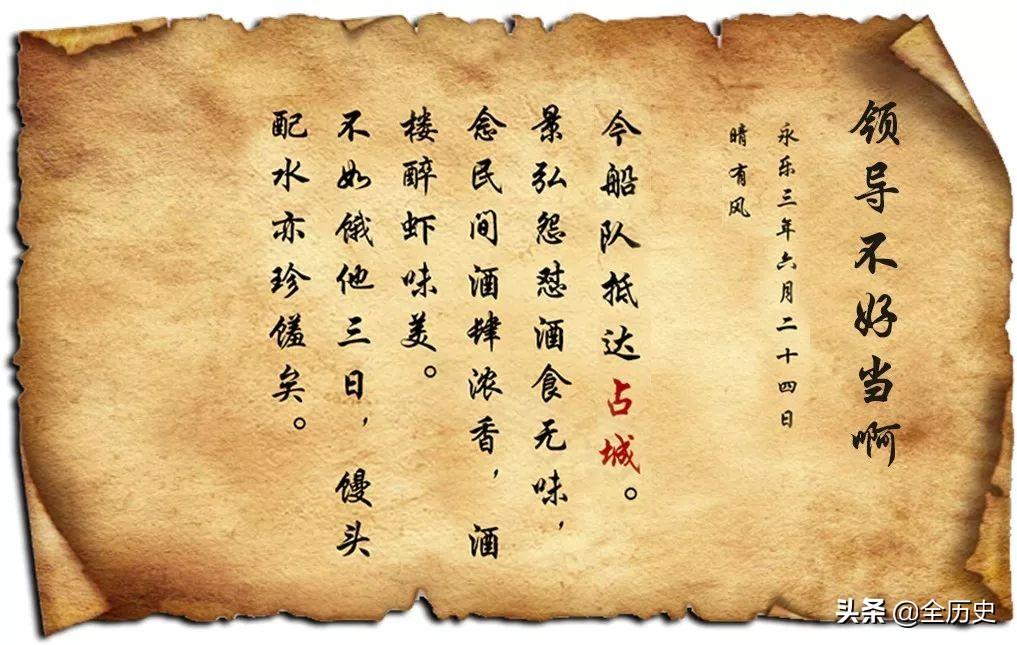 领导不好当啊
永乐三年六月二十四日
晴有风
今船队抵达占城。
景弘怨怼酒食无味，
念民间酒肆浓香，酒
楼醉虾味美。
不如饿他三日，馒头
配水亦珍馐矣。
头条 @全历史